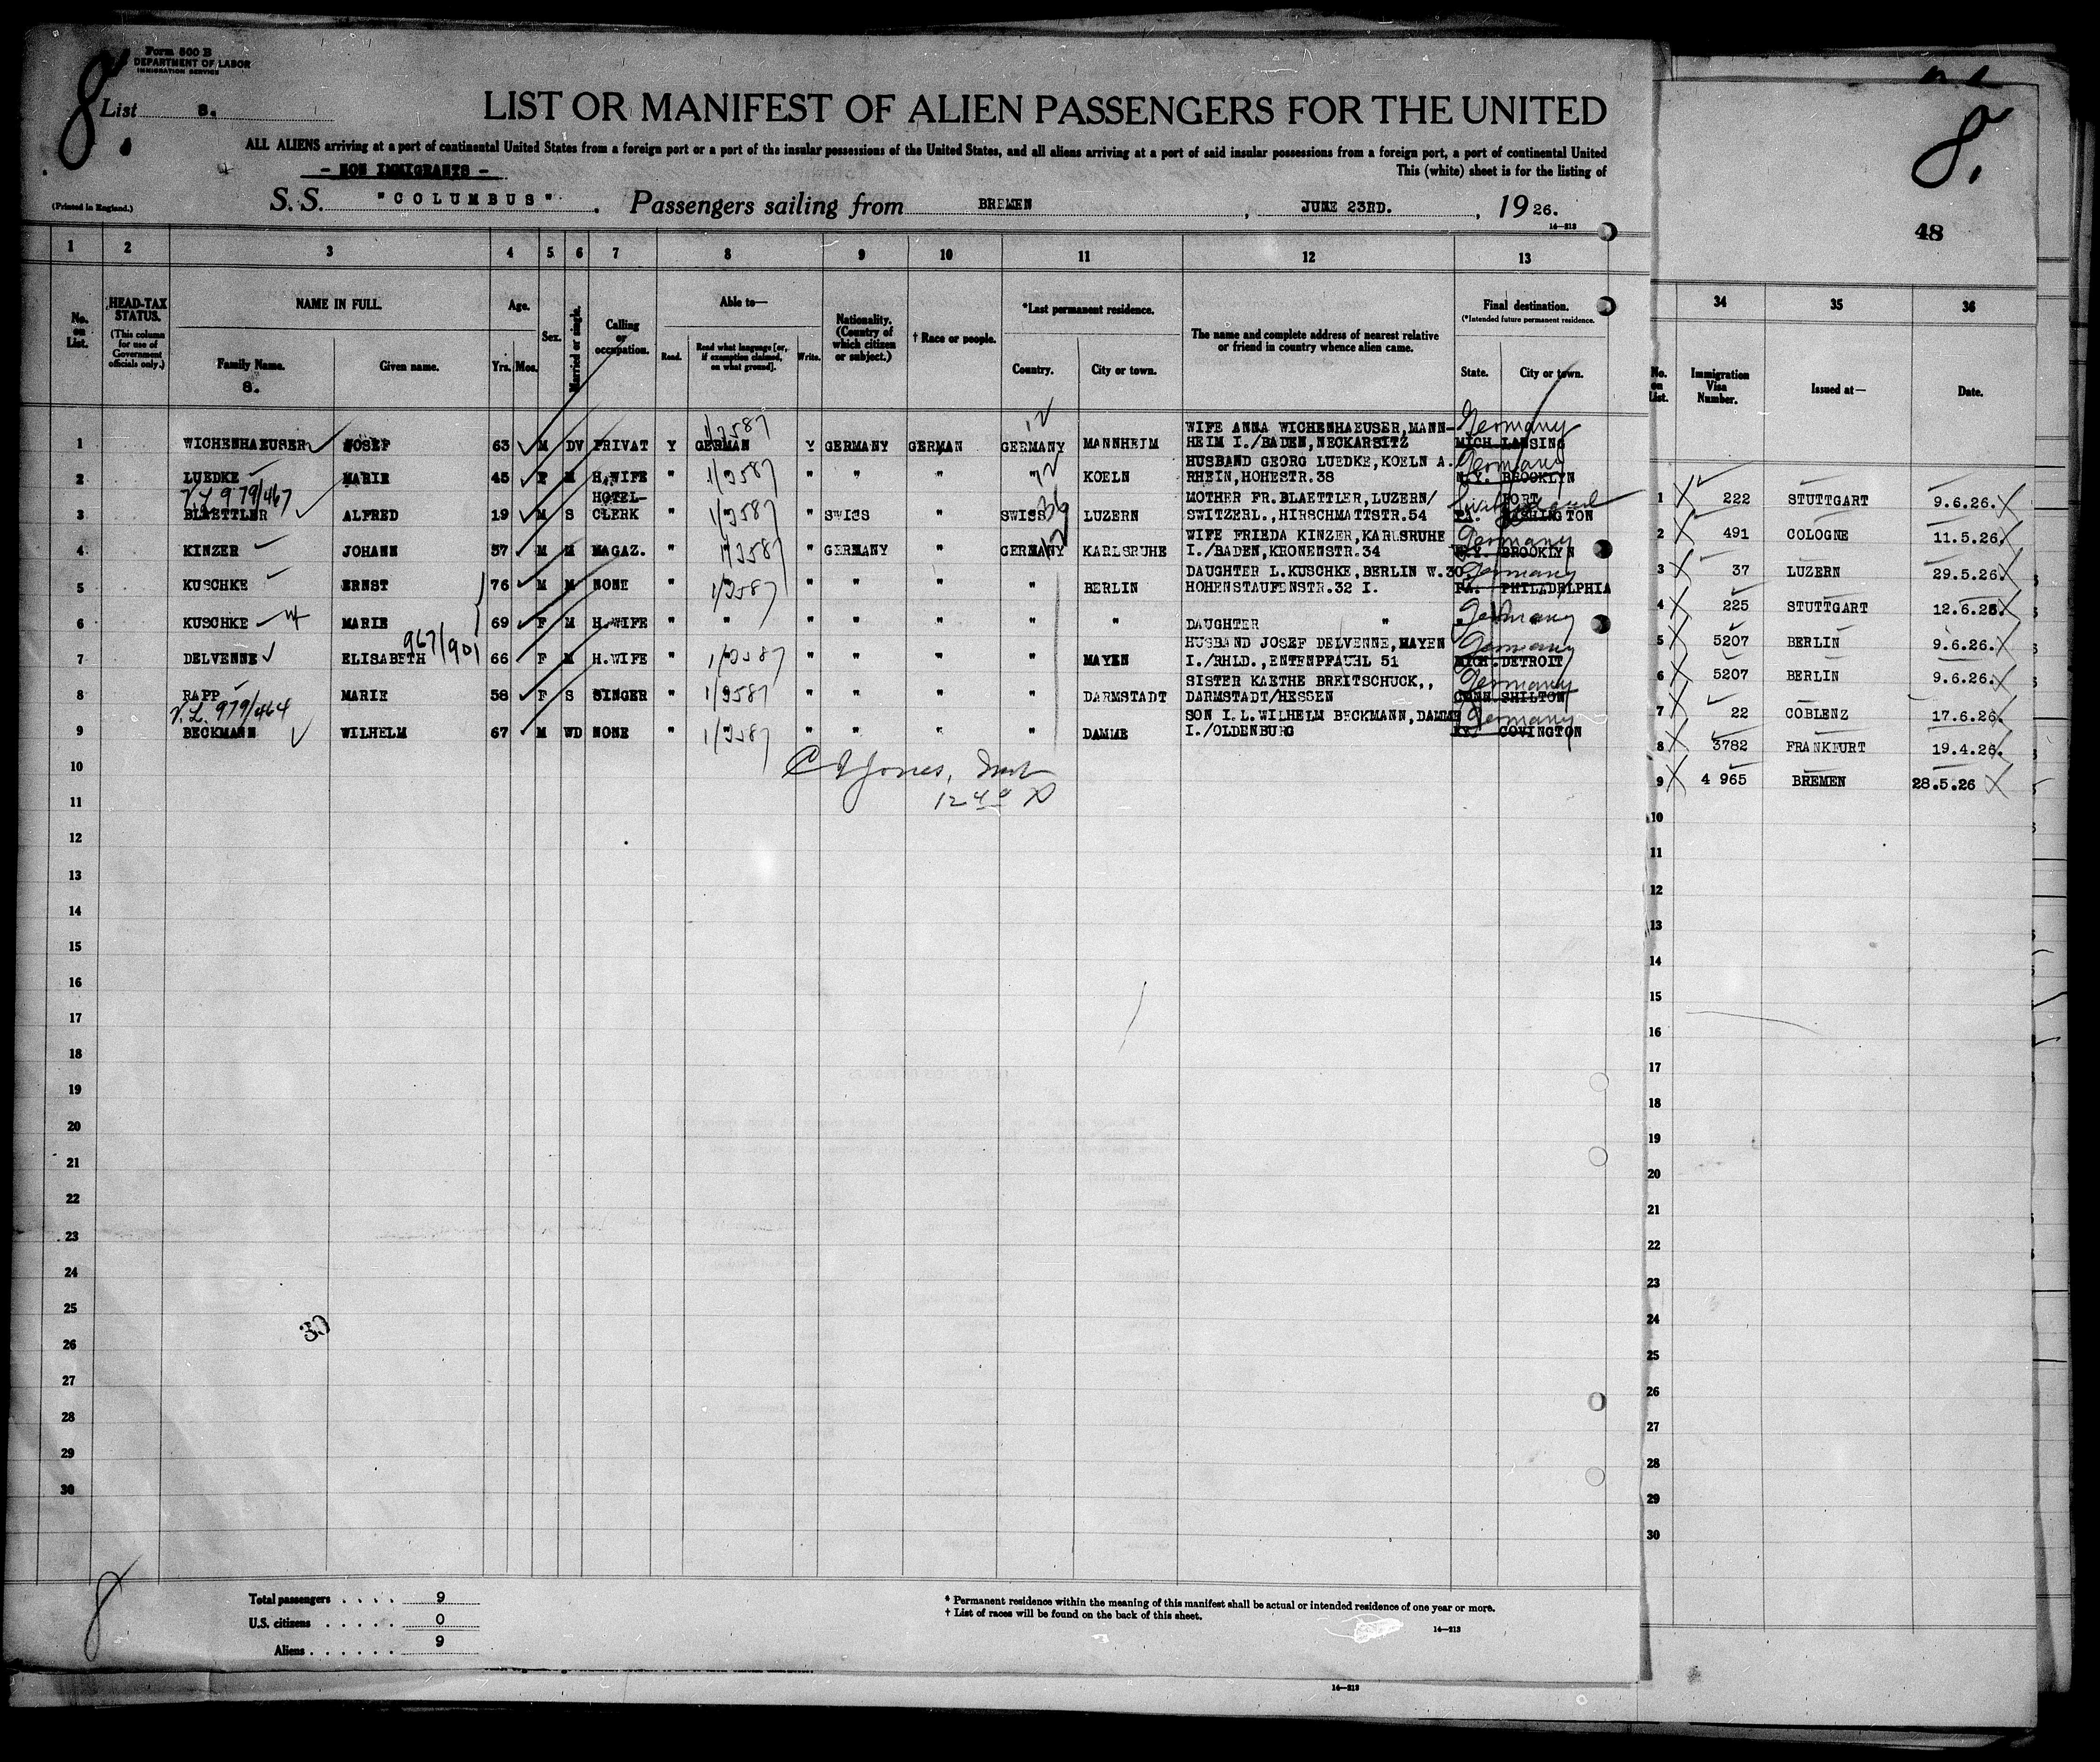 Form 500 B
DEPARTMENT OF LABOR
IMMIGRATION SERVICE
8.
List 8.
LIST OR MANIFEST OF ALIEN PASSENGERS FOR THE UNITED
ALL ALIENS arriving at a port of continental United States from a foreign port or a port of the insular possessions of the United States, and all aliens arriving at a port of said insular possessions from a foreign port, a port of continental United
- NON IMMIGRANTS -
This (white) sheet is for the listing of
(Printed in England.)
S. S. "COLUMBUS". Passengers sailing from BREMEN, JUNE 23RD., 19 26.
14—213
8.
48
1 2 3 4 5 6 7 8 9 10 11 12 13
34 35 36
No. on List.
HEAD-TAX STATUS.
(This column for use of Government officials only.)
NAME IN FULL.
Family Name.
8.
Given name.
Age.
Yrs. Mos.
Sex.
Married or single.
Calling or occupation.
Able to—
Read.
Read what language [or, if exemption claimed, on what ground].
Write.
Nationality. (Country of which citizen or subject.)
† Race or people.
*Last permanent residence.
Country.
City or town.
The name and complete address of nearest relative or friend in country whence alien came.
Final destination.
(*Intended future permanent residence.
State.
City or town.
No. on List.
Immigration Visa Number.
Issued at—
Date.
1 WICHENHAEUSER JOSEF 63 M DV PRIVAT Y GERMAN Y GERMANY GERMAN GERMANY MANNHEIM WIFE ANNA WICHENHAEUSER, MANN-
HEIM I./BADEN, NECKARSITZ MICH. LANSING Germany
2 LUEDKE MARIE 45 F M H.WIFE " 1/3587 " " " " KOELN HUSBAND GEORG LUEDKE, KOELN A.
RHEIN, HOHESTR. 38 N.Y. BROOKLYN Germany
V.L 979/467
3 BLAETTLER ALFRED 19 M S HOTEL-
CLERK " 1/3587 " SWISS " SWISS 36 LUZERN MOTHER FR. BLAETTLER, LUZERN/
SWITZERL., HIRSCHMATTSTR. 54 PA. FORT WASHINGTON Switzerland
4 KINZER JOHANN 57 M M MAGAZ. " 1/3587 " GERMANY " GERMANY 12 KARLSRUHE WIFE FRIEDA KINZER, KARLSRUHE
I./BADEN, KRONENSTR. 34 N.Y. BROOKLYN Germany
5 KUSCHKE ERNST 76 M M NONE " 1/3587 " " " " BERLIN DAUGHTER L. KUSCHKE, BERLIN W. 30
HOHENSTAUFENSTR. 32 I. PA. PHILADELPHIA Germany
6 KUSCHKE MARIE 69 F M H.WIFE " " " " " " " DAUGHTER " " Germany
967/901
7 DELVENNE ELISABETH 66 F M H.WIFE " 1/3587 " " " " MAYEN HUSBAND JOSEF DELVENNE, MAYEN
I./RHLD., ENTENPFAUHL 51 MICH. DETROIT Germany
8 RAPP MARIE 58 F S SINGER " 1/3587 " " " " DARMSTADT SISTER KAETHE BREITSCHUCK,,
DARMSTADT/HESSEN CONN. SHILTON Germany
V.L. 979/464
9 BECKMANN WILHELM 67 M WD NONE " 1/3587 " " " " DAMME SON I.L. WILHELM BECKMANN, DAMME
I./OLDENBURG KY. COVINGTON Germany
C J Jones, Insp
1 222 STUTTGART 9.6.26.
2 491 COLOGNE 11.5.26.
3 37 LUZERN 29.5.26.
4 225 STUTTGART 12.6.26.
5 5207 BERLIN 9.6.26.
6 5207 BERLIN 9.6.26.
7 22 COBLENZ 17.6.26.
8 3782 FRANKFURT 19.4.26.
9 4 965 BREMEN 28.5.26
10
11
12
13
14
15
16
17
18
19
20
21
22
23
24
25
26
27
28
29
30
10
11
12
13
14
15
16
17
18
19
20
21
22
23
24
25
26
27
28
29
30
30
8
Total passengers . . . . 9
U.S. citizens . . . . . 0
Aliens . . . . . . 9
* Permanent residence within the meaning of this manifest shall be actual or intended residence of one year or more.
† List of races will be found on the back of this sheet.
14—213
14—213